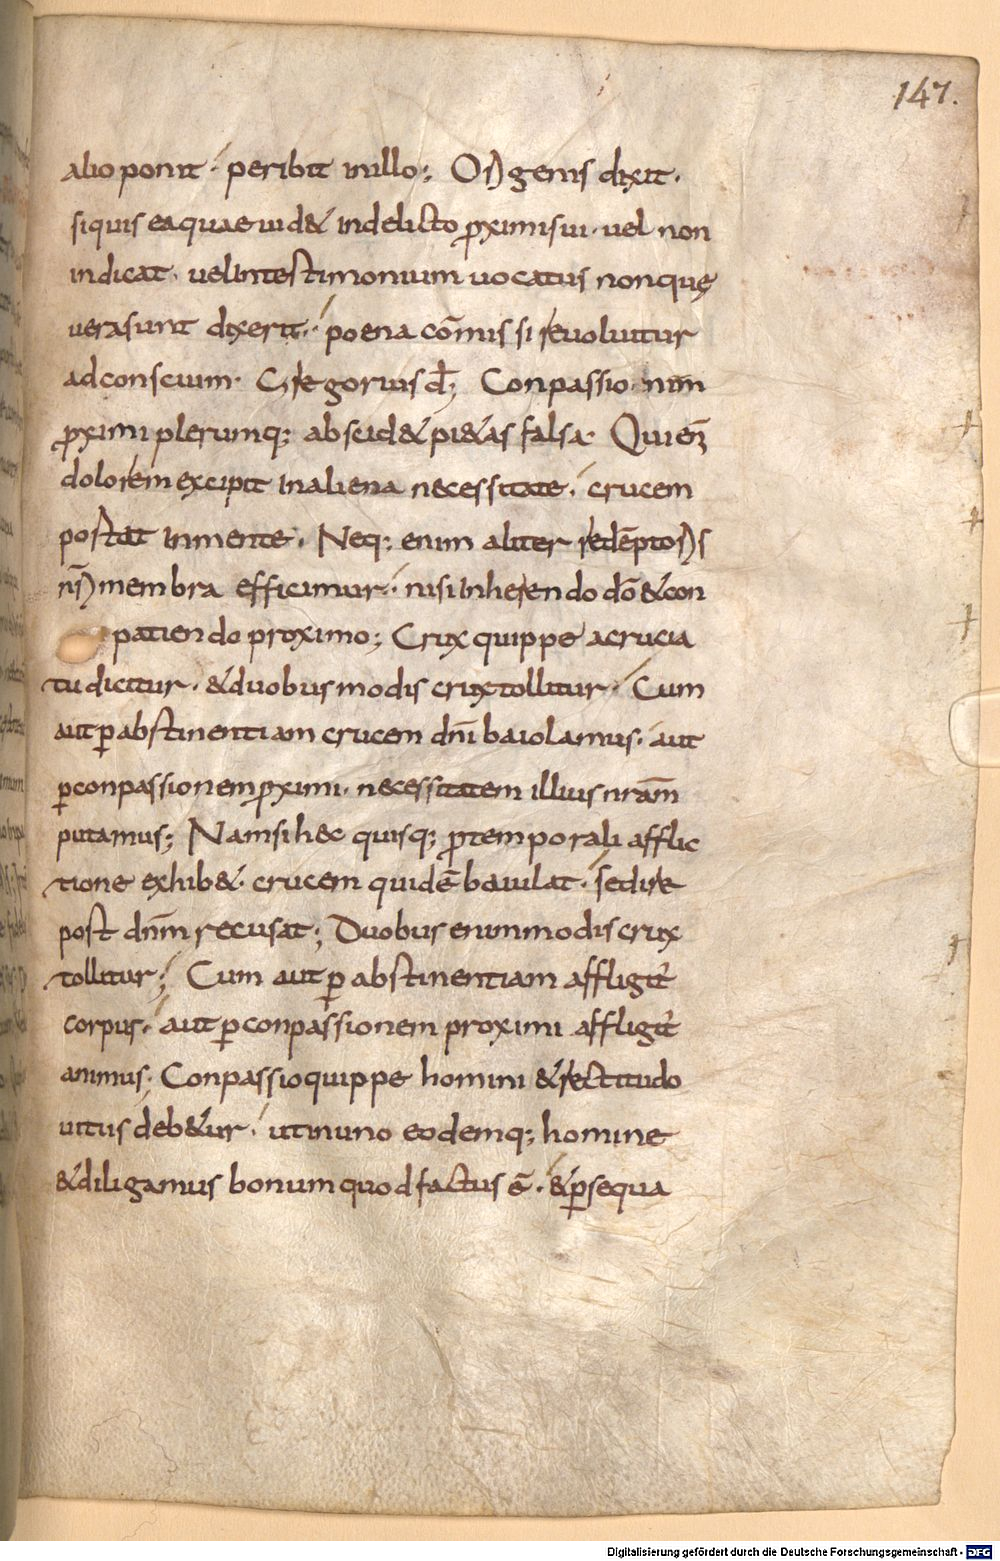 147.
alio ponit · peribit inillo; Origenis dixit ·
siquis eaquae uid& indelicto proximisui · uel non
indicat · uelintestimonium uocatus nonque
uerasunt dixerit · poena co̅mis si reuoluitur
adconscium · Gregorius d̅; Conpassio · nim
proximi plerumq; abscid& pi&as falsa · Qui eni̅
dolorem excipit inaliena necessitate · crucem
postat inmente · Neq; enim aliter rede̅ptoris
nr̅i membra efficimur · nisi inherendo do̅ &con
patiendo proximo; Crux quippe acrucia
tu dicitur · &duobus modis crux tollitur · Cum
aut ꝑabstinentiam crucem dni̅ baiolamus · aut
ꝑconpassionem proximi · necessitatem illius nra̅m
putamus; Namsi hec quisq; pro temporali afflic
tione exhib& · crucem quide̅ baiulat · sedire
post dnm̅ recusat; Duobus enimmodis crux
tollitur; Cum aut ꝑ abstinentiam affligit᷑
corpus · aut ꝑconpassionem proximi affligit᷑
animus · Conpassio quippe homini &rectitudo
uitiis deb&ur · utinuno eodemq; homine
&diligamus bonum quod factus e̅ · &ꝑsequa
Digitalisierung gefördert durch die Deutsche Forschungsgemeinschaft - DFG